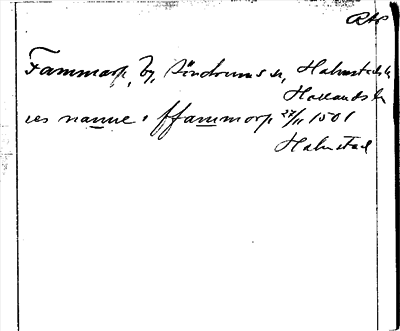 RAp
Fammarp, by, Söndrums sn, Halmstads h
Hallands l
ues namne i ffammorp 27/11 1501
Halmstad